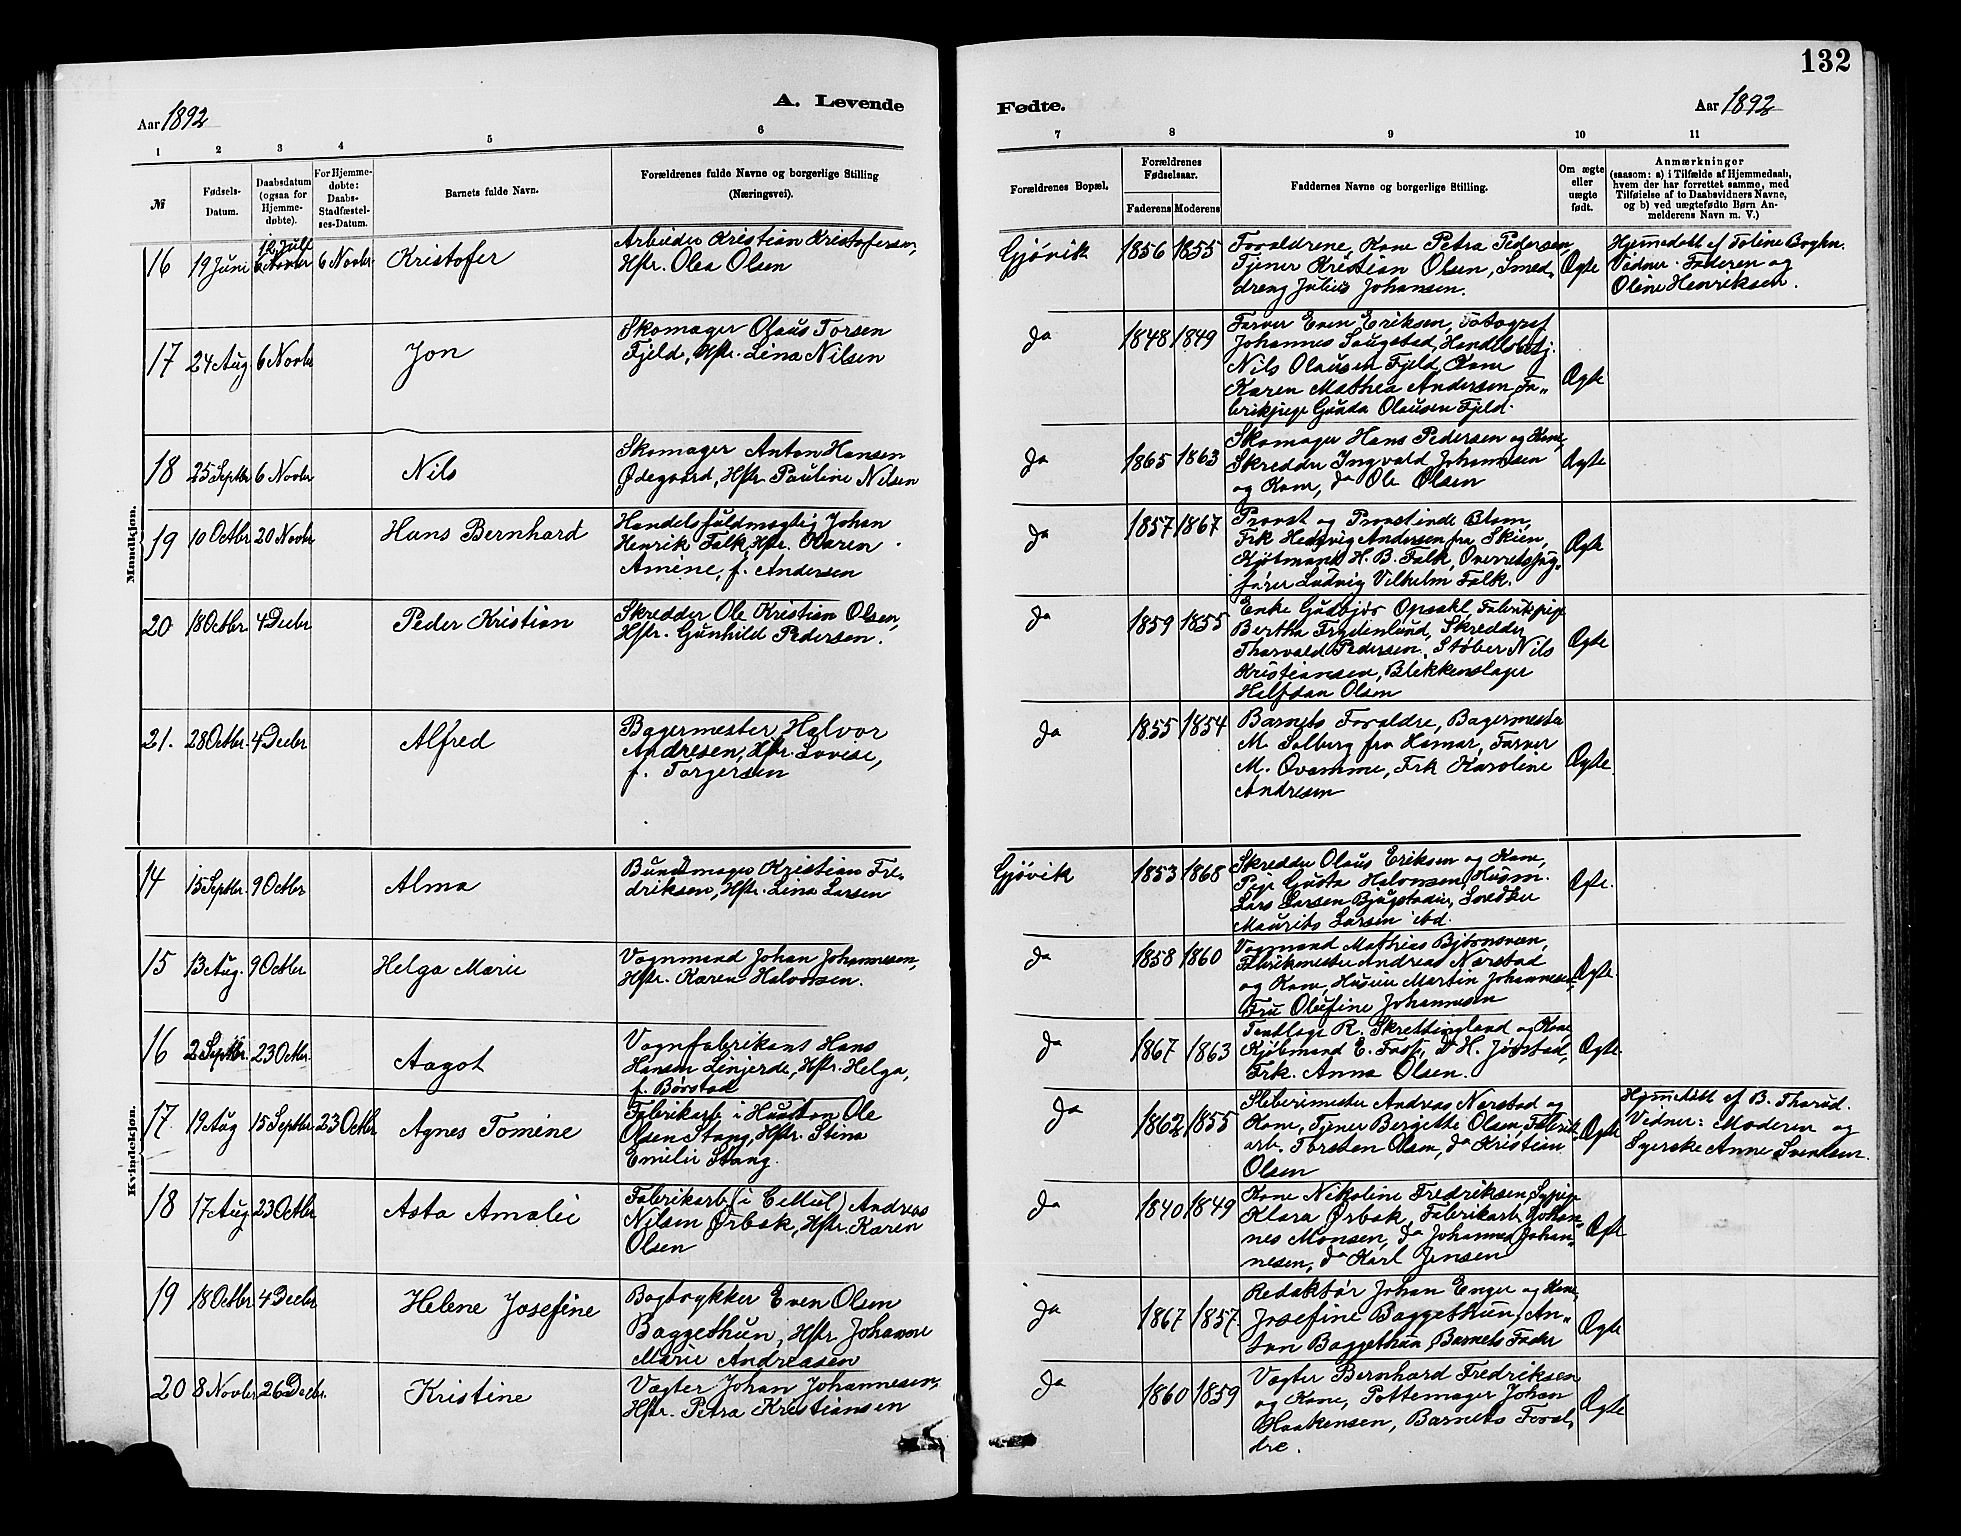 132
Aar 1892
A. Levende
Fødte.
Aar 1892
1
2
3
4
5
6
7
8
9
10
11
№
Fødsels-
Datum.
Daabsdatum
(ogsaa for
Hjemme-
døbte).
For Hjemme-
døbte:
Daabs-
Stadfæstel-
ses-Datum.
Barnets fulde Navn.
Forældrenes fulde Navne og borgerlige Stilling
(Næringsvei).
Forældrenes Bopæl.
Forældrenes
Fødselsaar.
Faderens Moderens
Faddernes Navne og borgerlige Stilling.
Om ægte
eller
uægte
født.
Anmærkninger
(saasom: a) i Tilfælde af Hjemmedaab,
hvem der har forrettet samme, med
Tilføielse af to Daabsvidners Navne,
og b) ved uægtefødte Børn An-
melderens Navn m. V.)
Mandkjøn.
16
19 Juni
12 Juli
6 Novbr
6 Novbr
Kristofer
Arbeider Kristian Kristofersen,
Hstr. Olea Olsen
Gjøvik
1856
1855
Forældrene, Kone Petra Pedersen,
Tjener Kristian Olsen, Smed-
dreng Julius Johansen.
Ægte
Hjemmedøbt af Foline Boghn.
Vidner. Faderen og
Oline Henriksen.
17
24 Aug
6 Novbr
Jon
Skomager Olaus Torsen
Fjeld, Hstr. Lina Nilsen
do
1848
1849
Farver Even Eriksen, Fotograf
Johannes Saugstad, Handelsbetj.
Nils Olausen Fjeld, Kone
Karen Mathea Andersen, Fa-
brikpige Gunda Olausen Fjeld.
Ægte
18
25 Septbr
6 Novbr
Nils
Skomager Anton Hansen
Ødegaard, Hstr Pauline Nilsen
do
1865
1863
Skomager Hans Pedersen og Kone,
Skredder Ingvald Johannesen
og Kone, do Ole Olsen
Ægte
19
10 Octbr
20 Novbr
Hans Bernhard
Handelsfuldmægtig Johan
Henrik Falk, Hstr. Karen
Amine, f. Andersen
do
1857
1867
Provst og Provstinde Blom,
Frk Hedevig Andersen fra Skien,
Kjøbmand H. B. Falk, Overretssag-
fører Ludvig Vilhelm Falk.
Ægte
20
18 Octbr
4 Decbr
Peder Kristian
Skredder Ole Kristian Olsen,
Hstr. Gunhild Pedersen.
do
1859
1855
Enke Gudbjør Opsahl, Fabrikpige
Bertha Frydenlund, Skredder
Thorvald Pedersen, Støber Nils
Kristiansen, Blikkenslager
Halfdan Olsen
Ægte
21.
28 Octbr
4 Decbr
Alfred
Bagermester Halvor
Andresen, Hstr. Lovise,
f. Torgersen
do
1855
1854
Barnets Forældre, Bagermester
M. Solberg fra Hamar, Farver
M. Qvamme, Frk Karoline
Andresen
Ægte.
Kvindekjøn.
14
15 Septbr.
9 Octbr
Alma
Bundtmager Kristian Fre-
driksen, Hstr. Lina Larsen
Gjøvik
1853
1868
Skredder Olaus Eriksen og Kone,
Pige Gusta Halvorsen, Husm.
Lars Larsen Bjugstadeie, Snedker
Maurits Larsen ibd.
Ægte.
15
13 Aug.
9 Octbr
Helga Marie
Vognmand Johan Johannesen,
Hstr. Karen Halvorsen.
do
1858
1860
Vognmand Mathias Bjørnsveen,
Fabrikmester Andreas Nerstad
og Kone, Huseier Martin Johannesen,
Fru Olufine Johannesen
Ægte.
16
2 Septbr.
23 Octbr.
Aagot
Vognfabrikant Hans
Hansen Linjerde, Hstr. Helga,
f. Børstad
do
1867
1863
Tandlæge R. Skrettingland og Kone
Kjøbmand E. Foss, do H. Jørstad,
Frk. Anna Olsen.
Ægte.
17.
19 Aug
15 Septbr
23 Octbr
Agnes Tomine
Fabrikarb. i Hunton Ole
Olsen Stang, Hstr. Stina
Emilie Stang.
do
1862
1855
Sliberimester Andreas Nerstad og
Kone, Tjener Bergette Olsen, Fabrik-
arb. Torsten Olsen, do Kristian
Olsen
Ægte
Hjemmedøbt af B. Thorud.
Vidner: Moderen og
Syerske Anne Svendsen.
18
17 Aug
23 Octbr
Asta Amalie
Fabrikarb. (i Cellul) Andreas
Nilsen Ørbæk, Hstr. Karen
Olsen
do
1840
1849
Kone Nikoline Fredriksen, Sypige
Klara Ørbæk, Fabrikarb. Johan-
nes Monsen, do Johannes Johan-
nesen, do Karl Jensen
Ægte
19
18 Octbr
4 Decbr
Helene Josefine
Bogtrykker Even Olsen
Baggethun, Hstr Johanne
Marie Andreasen
do
1867
1857
Redaktør Johan Enger og Kone,
Josefine Baggethun, An-
ton Baggethun, Barnets Fader
Ægte
20
8 Novbr
26 Decbr.
Kristine
Vægter Johan Johannesen,
Hstr. Petra Kristiansen
do
1860
1859
Vægter Bernhard Fredriksen
og Kone, Pottemager Johan
Haakensen, Barnets Foræl-
dre.
Ægte